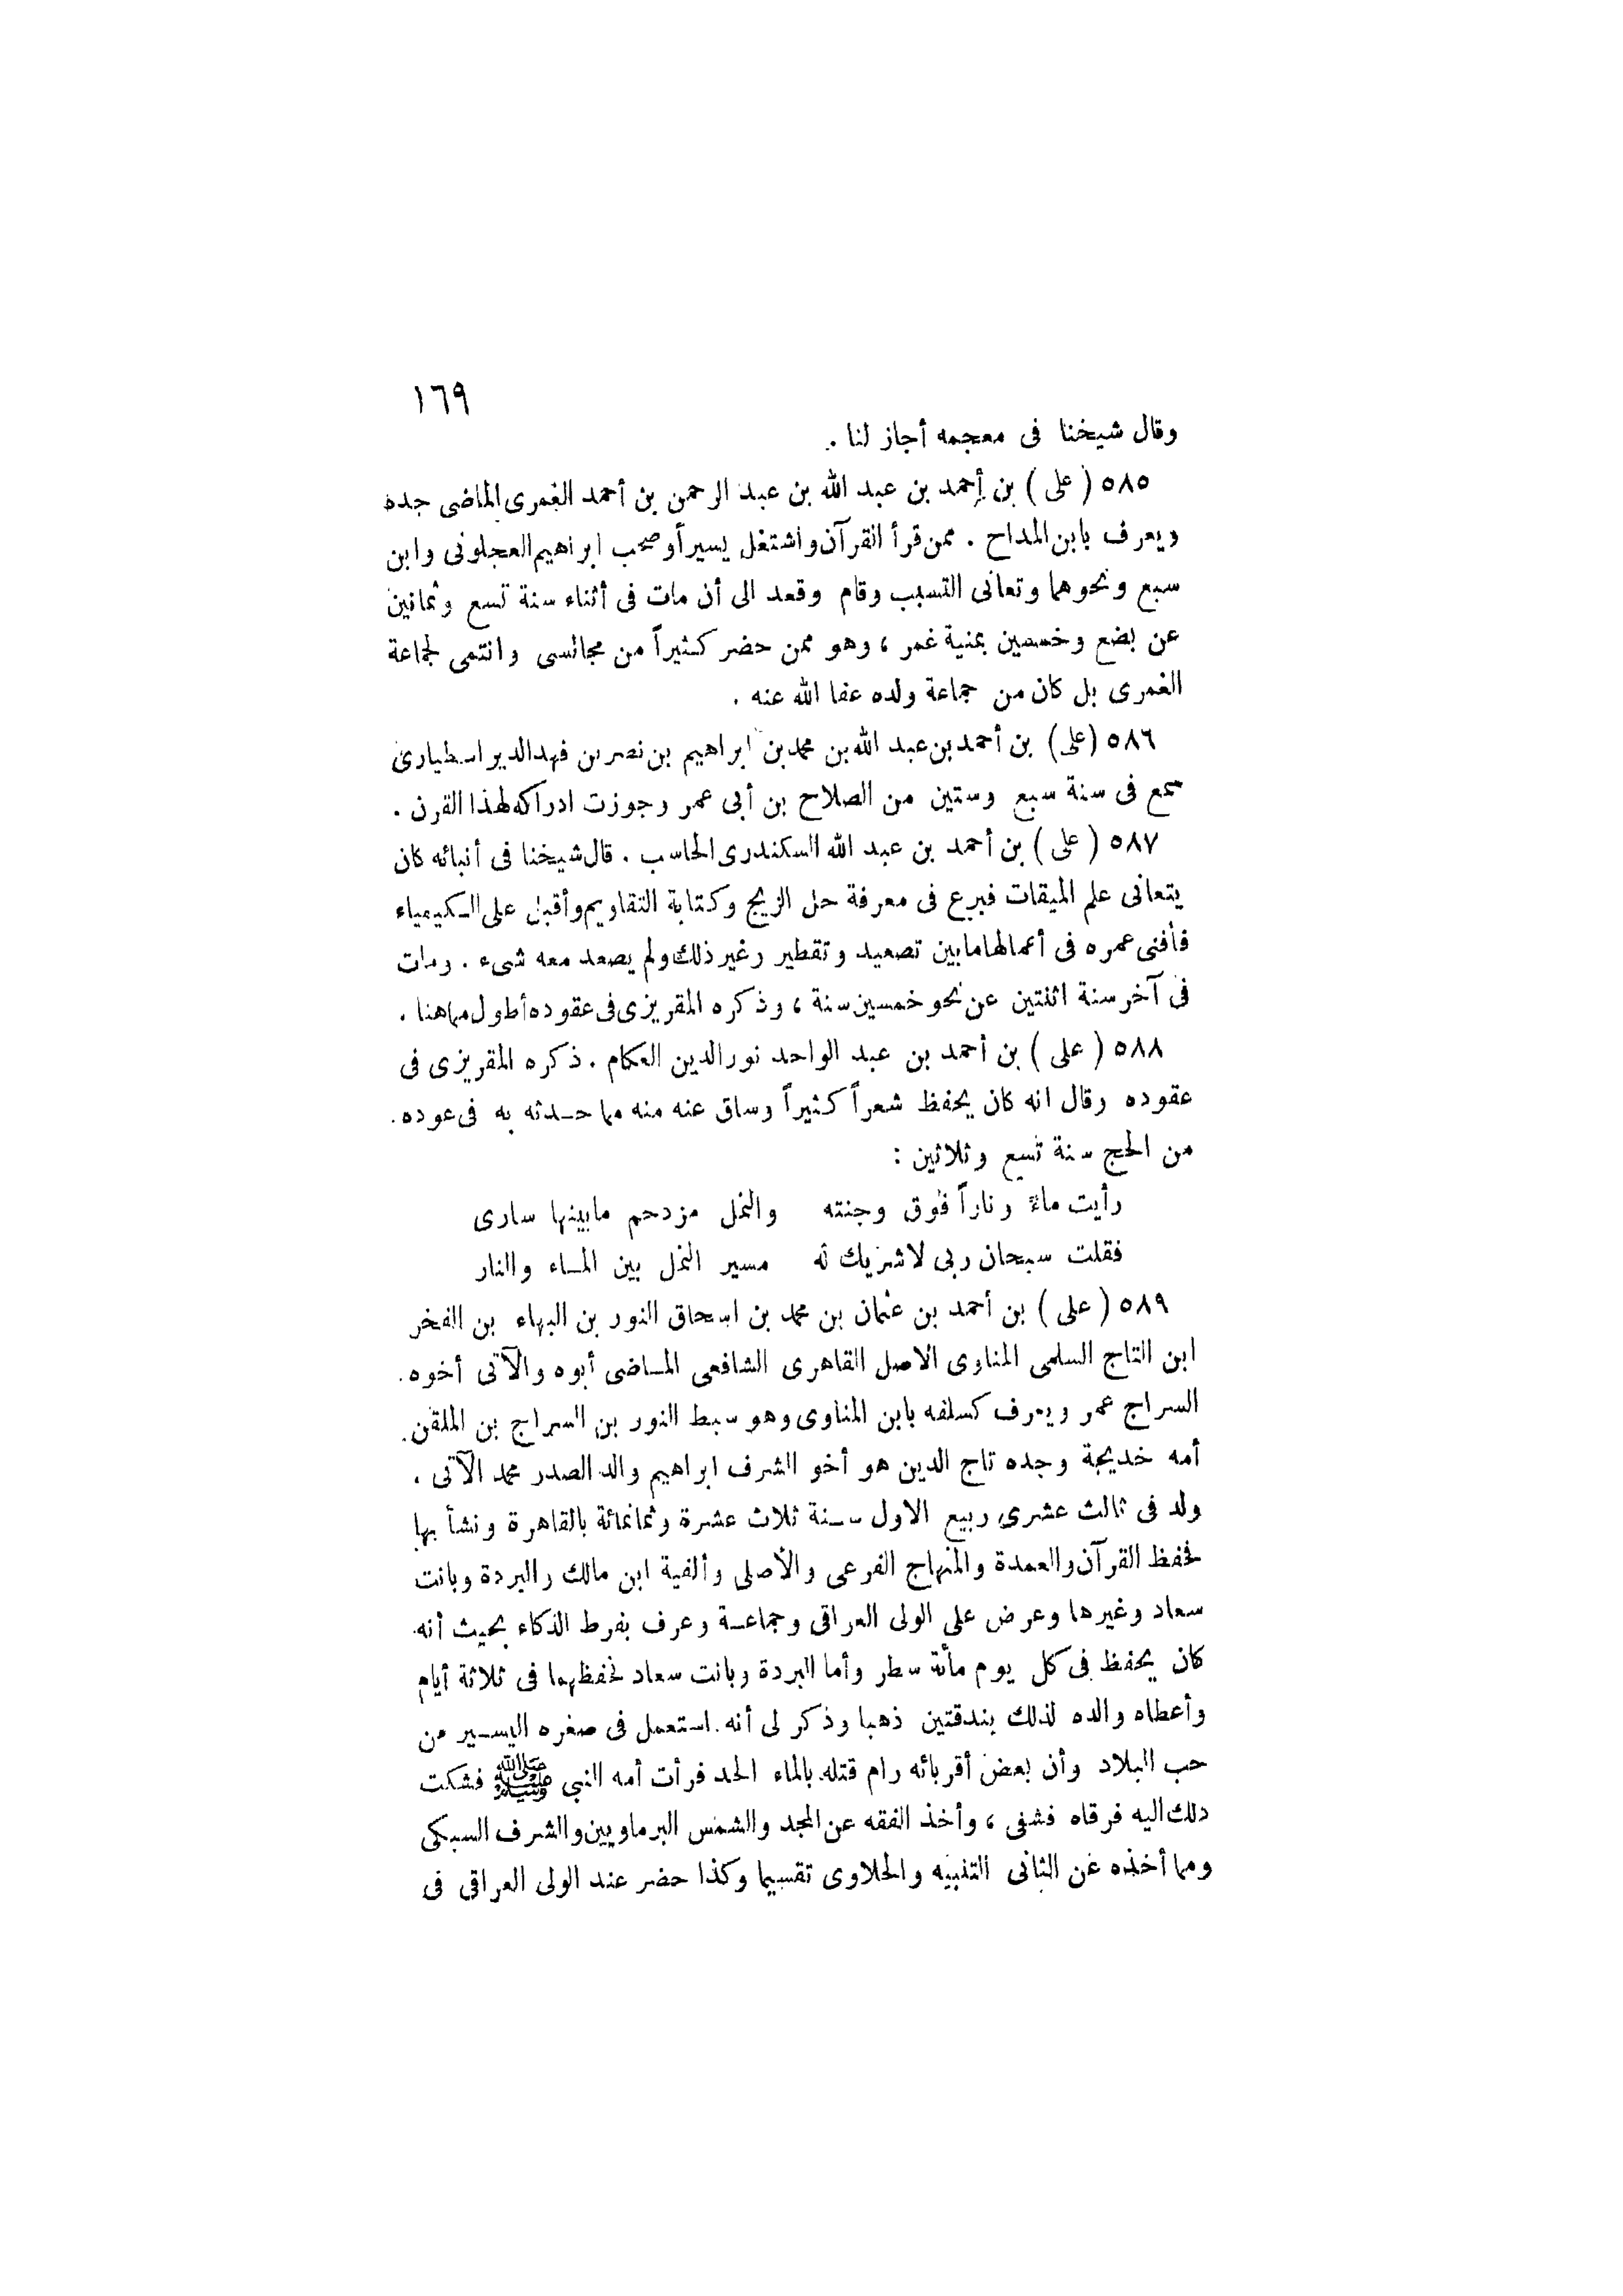 ١٦٩
وقال شيخنا فى معجمه أجاز لنا .
٥٨٥ ( على ) بن أحمد بن عبد الله بن عبد الرحمن بن أحمد الغمرى الماضى جده
ويعرف بابن المداح . ممن قرأ القرآن واشتغل يسيراً وصحب ابراهيم العجلونى وابن
سبع ونحوهما وتعانى التسبب وقام وقعد الى أن مات فى أثناء سنة تسع وثمانين
عن بضع وخمسين بمنية غمر ، وهو ممن حضر كثيراً من مجالسى وانتمى لجماعة
الغمرى بل كان من جماعة ولده عفا الله عنه .
٥٨٦ (على) بن أحمد بن عبد الله بن محمد بن ابراهيم بن نصر بن فهد
سمع فى سنة سبع وستين من الصلاح بن أبى عمر وجوزت ادراكه لهذا القرن .
٥٨٧ ( على ) بن أحمد بن عبد الله السكندرى الحاسب . قال شيخنا فى أنبائه كان
يتعانى علم الميقات فبرع فى معرفة حل الزيج وكتابة التقاويم وأقبل على الكيمياء
فأفنى عمره فى أعمالها مابين تصعيد وتقطير وغير ذلك ولم يصعد معه شىء . ومات
فى آخر سنة اثنتين عن نحو خمسين سنة ، وذكره المقريزى فى عقوده أطول مما هنا .
٥٨٨ ( على ) بن أحمد بن عبد الواحد نور الدين العكام . ذكره المقريزى فى
عقوده وقال انه كان يحفظ شعراً كثيراً وساق عنه منه مما حدثه به فى عوده
من الحج سنة تسع وثلاثين :
رأيت ماءً وناراً فوق وجنته والنمل مزدحم مابينها سارى
فقلت سبحان ربى لا شريك له مسير النمل بين الماء والنار
٥٨٩ ( على ) بن أحمد بن عثمان بن محمد بن اسحاق النور بن البهاء بن الفخر
ابن التاج السلمى المناوى الاصل القاهرى الشافعى الماضى أبوه والآتى أخوه
السراج عمر ويعرف كسلفه بابن المناوى وهو سبط النور بن السراج بن الملقن
أمه خديجة وجده تاج الدين هو أخو الشرف ابراهيم والد الصدر محمد الآتى .
ولد فى ثالث عشرى ربيع الاول سنة ثلاث عشرة وثمانمائة بالقاهرة ونشأ بها
فحفظ القرآن والعمدة والمنهاج الفرعى والأصلى وألفية ابن مالك والبردة وبانت
سعاد وغيرها وعرض على الولى العراقى وجماعة وعرف بفرط الذكاء بحيث أنه
كان يحفظ فى كل يوم مأئة سطر وأما البردة وبانت سعاد فحفظهما فى ثلاثة أيام
وأعطاه والده لذلك بندقتين ذهبا وذكر لى أنه استعمل فى صغره اليسير من
حب البلاد وأن بعض أقربائه رام قتله بالماء الحد فرأت أمه النبي ﷺ فشكت
ذلك اليه فرقاه فشفى ، وأخذ الفقه عن المجد والشمس البرماويين والشرف السبكى
ومما أخذه عن الثانى التنبيه والحلاوى تقسيما وكذا حضر عند الولى العراقى فى